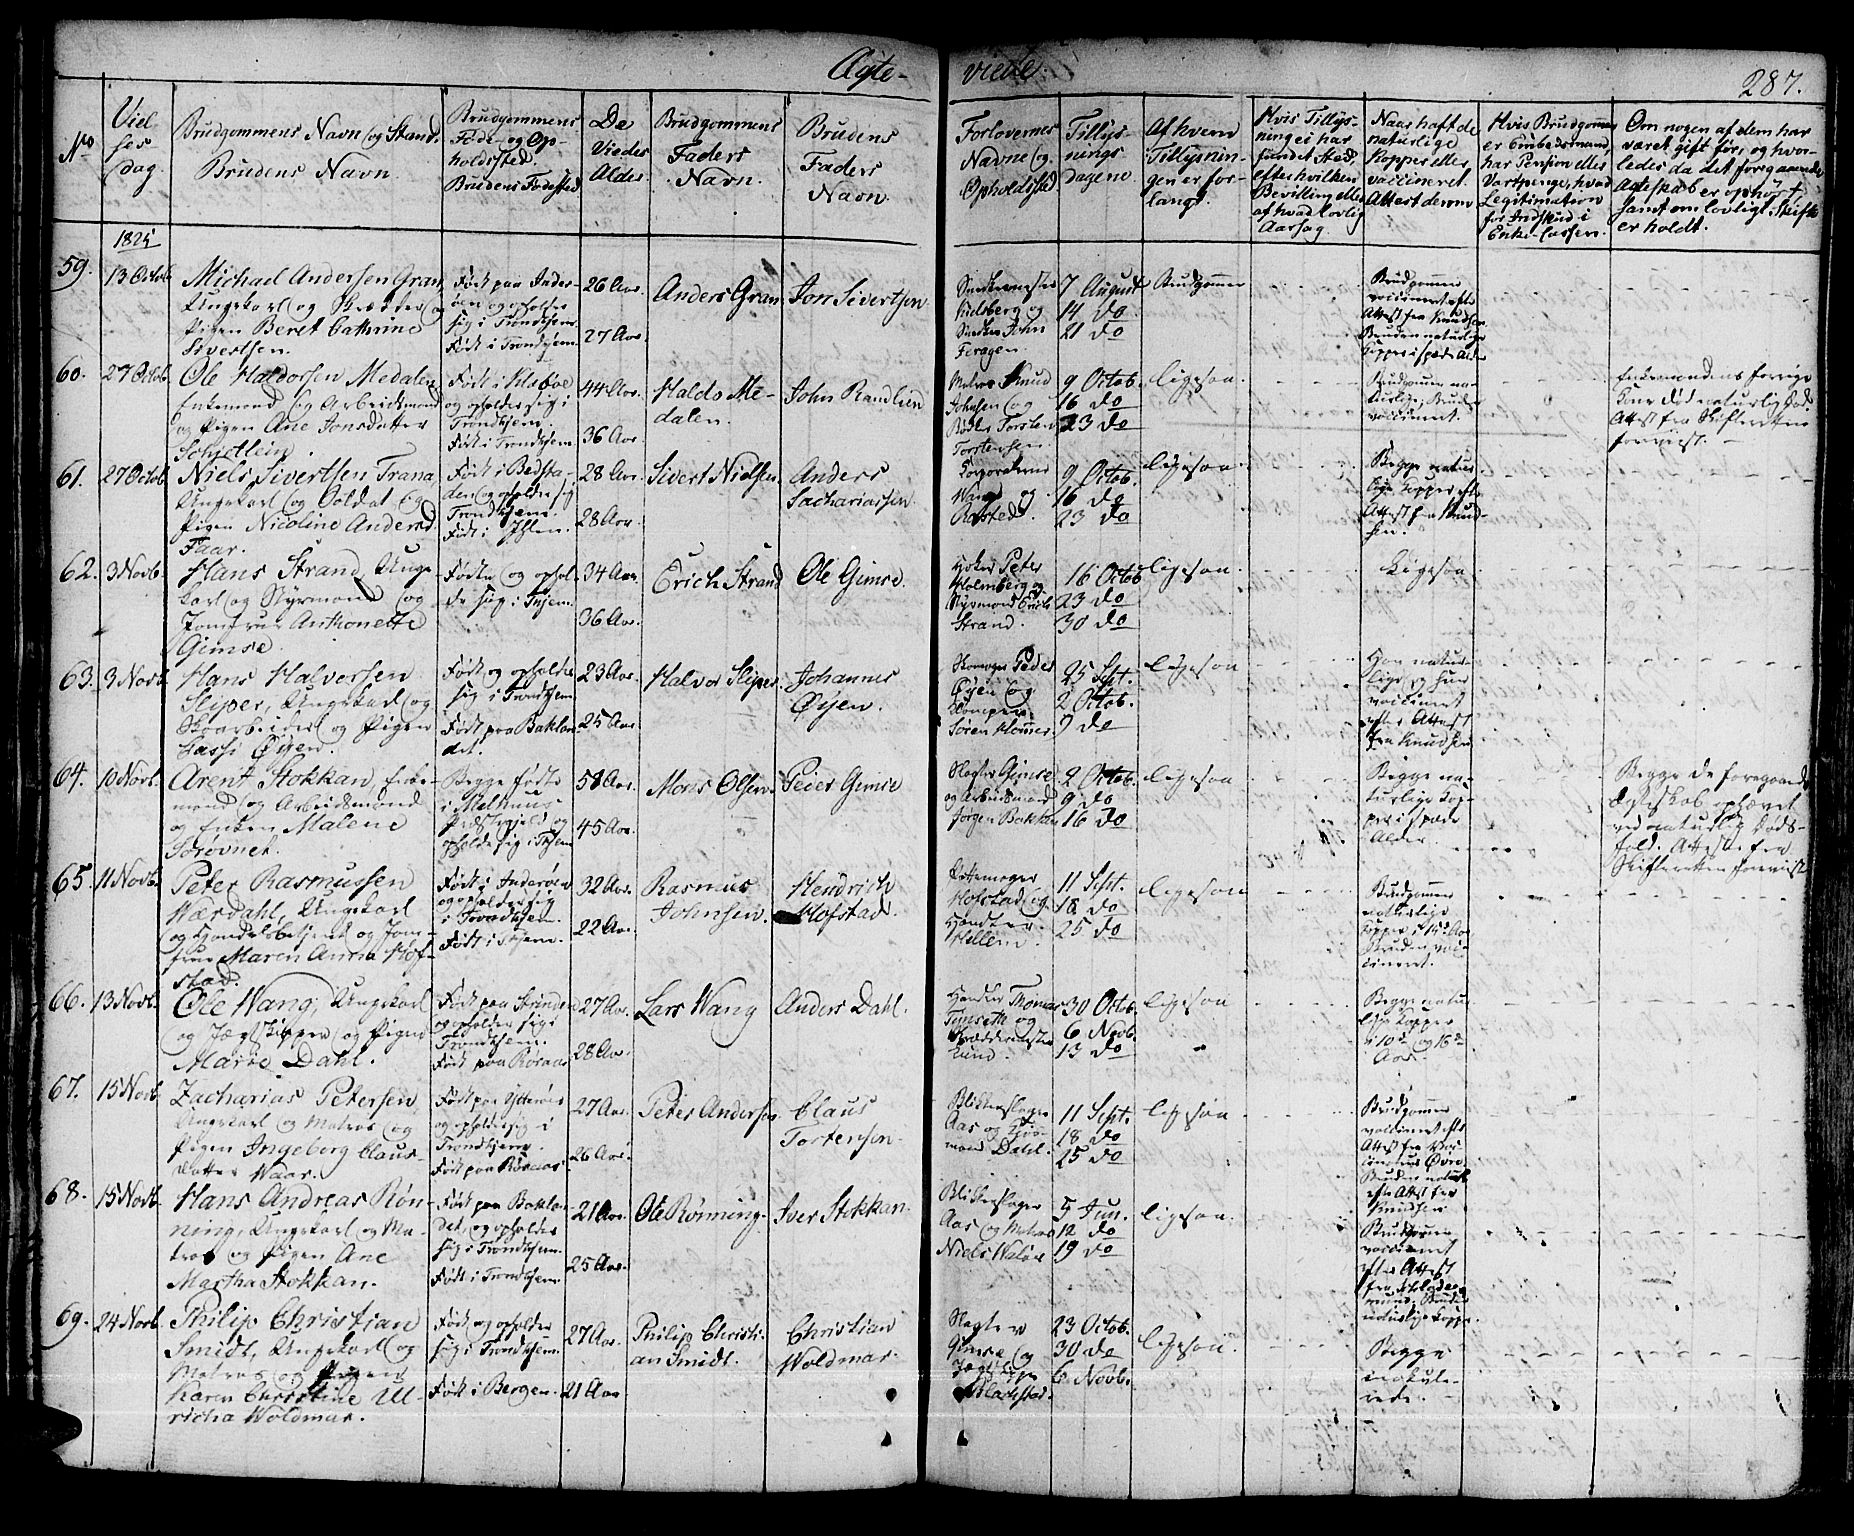 Ægte-
viede.
287.
No
Viel
ses-
dag.
Brudgommens Navn og Stand.
Brudens Navn.
Brudgommens
Føde- og Op-
holdssted.
Brudens Fødested
De
Viedes
Alder
Brudgommens
Faders
Navn.
Brudens
Faders
Navn.
Forlovernes
Navne og
Opholdssted
Tillys-
nings
dagene.
Af hvem
Tillysnin-
gen er for-
langt.
Hvis Tillys-
ning ei har
fundet Sted,
efter hvilken
Bevilling eller
af hvad lovlig
Aarsag
Naar hafte de
naturlige
Kopper eller
vaccineret.
Attest derom
Hvis Brudgommen
er Embedsmand,
har Pension eller
Vartpenge, hvad
Legitimation
for Indskud i
Enke-Cassen.
Om nogen af dem har
været gift før, og hvor-
ledes da det foregaaende
Ægteskab er ophørt
samt om lovligt Skifte
er holdt.
1825
59.
13 Octob
Michael Andersen Gran
Ungekarl og Skrædder og
Pigen Beret Cathrine
Sivertsen.
Født paa Inder-
øen og opholder
sig i Trondhjem.
Født i Trondhjem
26 Aar.
27 Aar.
Anders Gran
Jon Sivertsen
Kielsberg og
John
Feragen.
7 August
14 do
21 do
Brudgommen
Brudgommen
vaccineret efter
Attest fra Knudsen
Bruden naturlige
Kopper i spæd Alder
60.
27 Octob
Ole Haldorsen Medalen
Enkemand og Arbeidsmand
og Pigen Ane Jonsdatter
Schjetlein.
Født i
og opholder sig i
Trondhjem.
Født i Trondhjem
44 Aar.
36 Aar.
Haldo Me-
dalen.
John Randlien
Matros Knud
Johnsen og
Torsten
Torstensen.
9 Octob.
16 do
23 do
ligeson.
Brudgommen na-
turlige, Bruden
vaccineret.
Enkemandens forrige
Kone død naturlig Død.
Attest fra Skifteretten
foreviist.
61.
27 Octob
Niels Sivertsen Trana
Ungekarl og Soldat og
Pigen Nicoline Andersd.
Faar.
Født i Bedsta-
den og opholder sig
Trondhjem.
Født i Ihlen.
28 Aar.
28 Aar.
Sivert Nielsen
Anders
Sachariassen
Corporalerne
Wang og
Rasted
9 Octob.
16 do
23 do
ligeson.
Begge natur-
lige Kopper efter
Attest fra Knud-
sen.
62.
3 Novb.
Hans Strand, Unge-
karl og Styrmand og
Jomfrue Anthonette
Gimse.
Fødte og ophol-
de sig i Thjem.
34 Aar.
36 Aar.
Erich Strand
Ole Gimse
Høker Peter
Holmberg og
Styrmand Erich
Strand.
16 Octob
23 do
30 do
ligeson.
Ligeson
63.
3 Novb.
Hans Halversen
Sliper, Ungekarl og
Skoarbeider og Pigen
Øyen.
Født og opholder
sig i Trondhjem
Født paa Baklan
det.
23 Aar.
25 Aar.
Halvor Sliper.
Johannes
Øyen.
Skomager Peder
Øyen og
Søren Hammer
25 Sept.
2 Octob.
9 do
ligeson
Han natur-
lige og hun
vaccineret
efter Attest
fra Knudsen
64.
10 Novb.
Arent Stokkan, Enke-
mand og Arbeidsmand
og Enken Malene
Sorovnet.
Begge fødte
i Melhuus-
Præstegjeld og
opholde sig i Thjem
58 Aar.
45 Aar.
Mons Olsen
Peter Gimse
Slagter Gimse
og Arbeidsmand
Jørgen Bakkan
2 Octob.
9 do
16 do
ligeson
Begge na-
turlige Kop-
per i spæde
Alder.
Begge de foregaaende
Ægteskab ophævet
ved naturlig Døds-
fald. Attester fra
Skifteretten foreviist
65.
11 Novb.
Peter Rasmussen
Wærdahl, Ungekarl
og Handelsbetjent og Jom-
frue Maren Anna Hof-
stad.
Født i Inderøen
og opholder sig
i Trondhjem.
Født i Thjem.
32 Aar.
22 Aar.
Rasmus
Johnsen.
Hendrich
Hofstad.
Hofstad og
Handler
Hellem.
11 Sept.
18 do
25 do
ligeson
Brudgommen
naturlige
Kopper i 15de Aar
Bruden vac-
cineret.
66.
13 Novb.
Ole Wang, Ungekarl
og Jægtskipper og Pigen
Marie Dahl.
Født paa Strinden
og opholder sig i
Trondhjem.
Født paa Røraas
27 Aar.
28 Aar.
Lars Wang
Anders Dahl.
Handler Thomas
Timseth og
Skræddermester
Lund.
30 Octob.
6 Novb.
13 do
ligeson
Begge natur-
lige Kopper
i 10de og 16de
Aar.
67.
15 Novb
Zacharias Petersen
Ungekarl og Matros og
Pigen Ingeborg Claus-
datter Waar.
Født paa Ytterøen
og opholder sig i
Trondhjem.
Født paa Røraas
27 Aar.
26 Aar.
Peter Andersen
Claus
Tortensen.
Blikkenslager
Aas og
mand Dahl.
11 Sept.
18 do
25 do
ligeson
Brudgommen
vaccineret efter
Attest fra
Bruden naturl.
efter Attest fra
Knudsen
68.
15 Novb.
Hans Andreas Røn-
ning, Ungekarl og Ma-
tros og Pigen Ane
Martha Stokkan.
Født paa Baklan-
det, og opholder
sig i Trondhjem.
Født i Trondhjem
21 Aar.
25 Aar.
Ole Rønning.
Iver Stokkan.
Blikkenslager
Aas og Matros
Niels
5 Jun.
12 do
19 do
ligeson.
Brudgommen
vaccineret
efter Attest
fra
Bruden
naturlige Kopper
69.
24 Novb.
Philip Christian
Smidt, Ungekarl og
Matros og Pigen
Karen Christine Ul-
richa Woldmar.
Født og opholder
sig i Trondhjem.
Født i Bergen.
27 Aar.
21 Aar
Philip Christi-
an Smidt.
Christian
Woldmar.
Slagter
Gimse og
Jægtskipper
23 Octob.
30 do
6 Novb.
ligeson.
Begge
inokule-
rede.